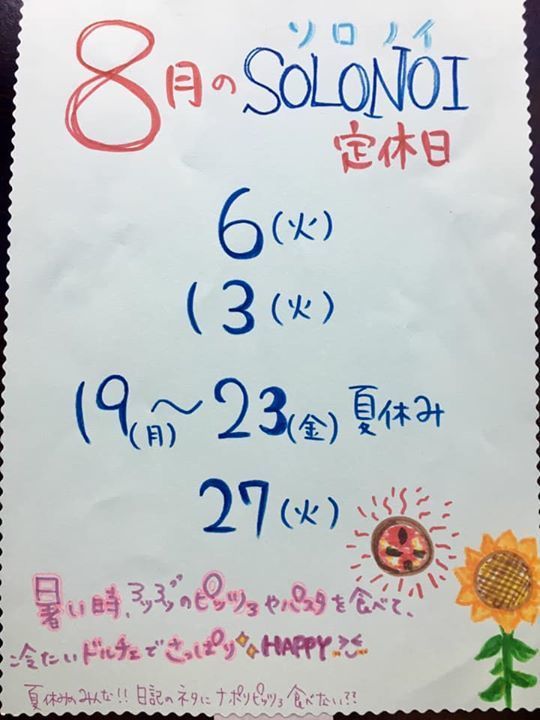 ソロノイ
8月のSOLONOI
定休日
6(火)
13(火)
19(月)〜23(金)夏休み
27(火)
暑い時、アツアツのピッツァやパスタを食べて、
冷たいドルチェでさっぱりHAPPY
夏休みのみんな!!日記のネタにナポリピッツァ食べない??